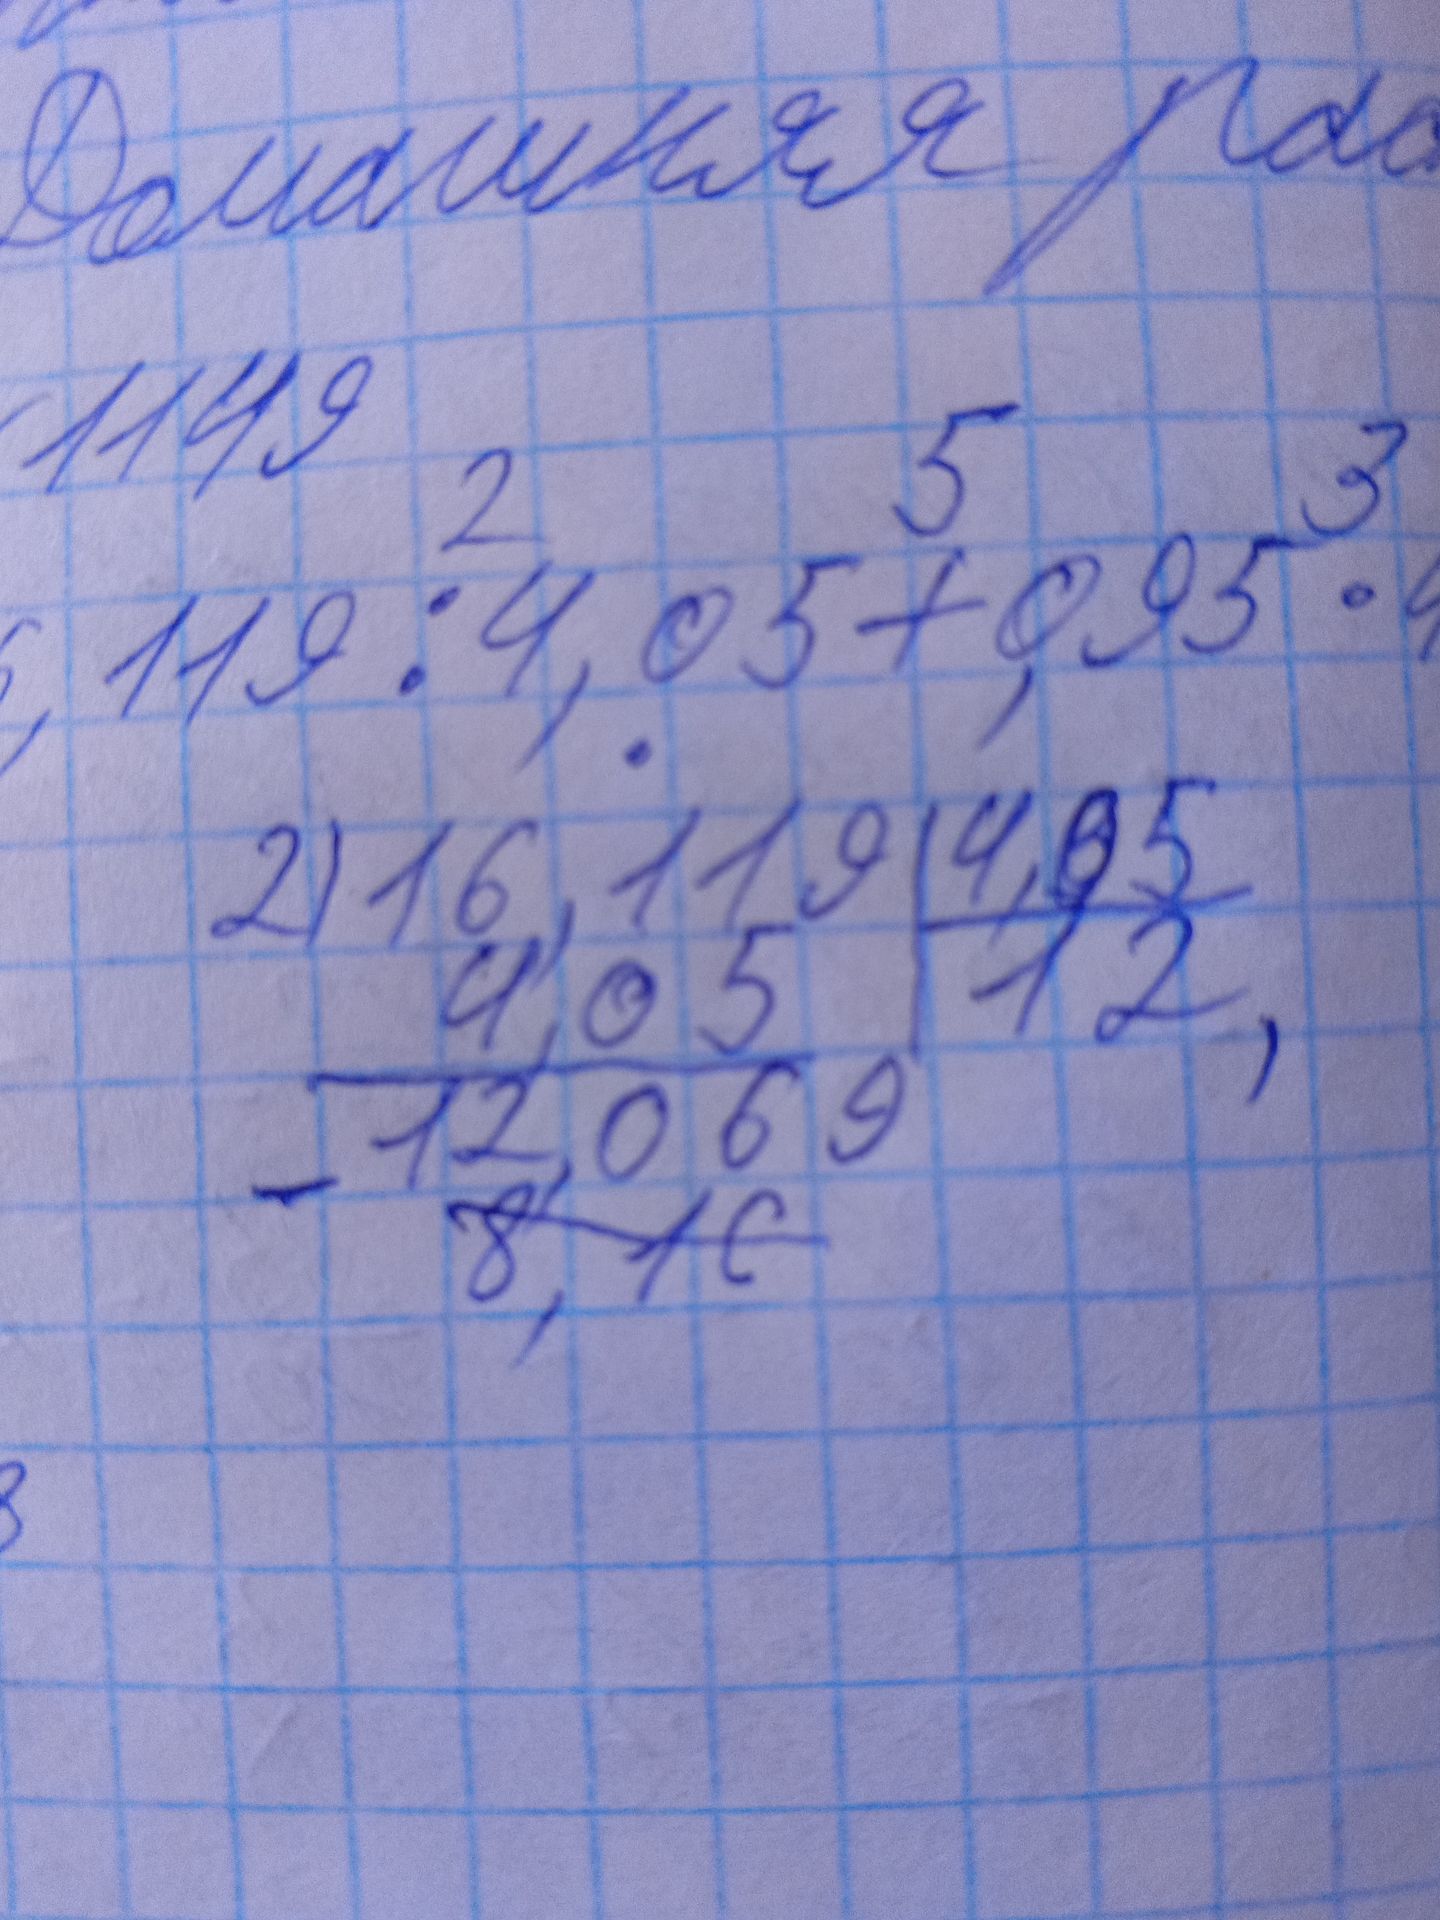 Домашняя
1149
2 5 3
,119 : 4,05 + 0,95 ·
2) 16,119 | 4,05
4,05 | 12,
12,069
- 8,16